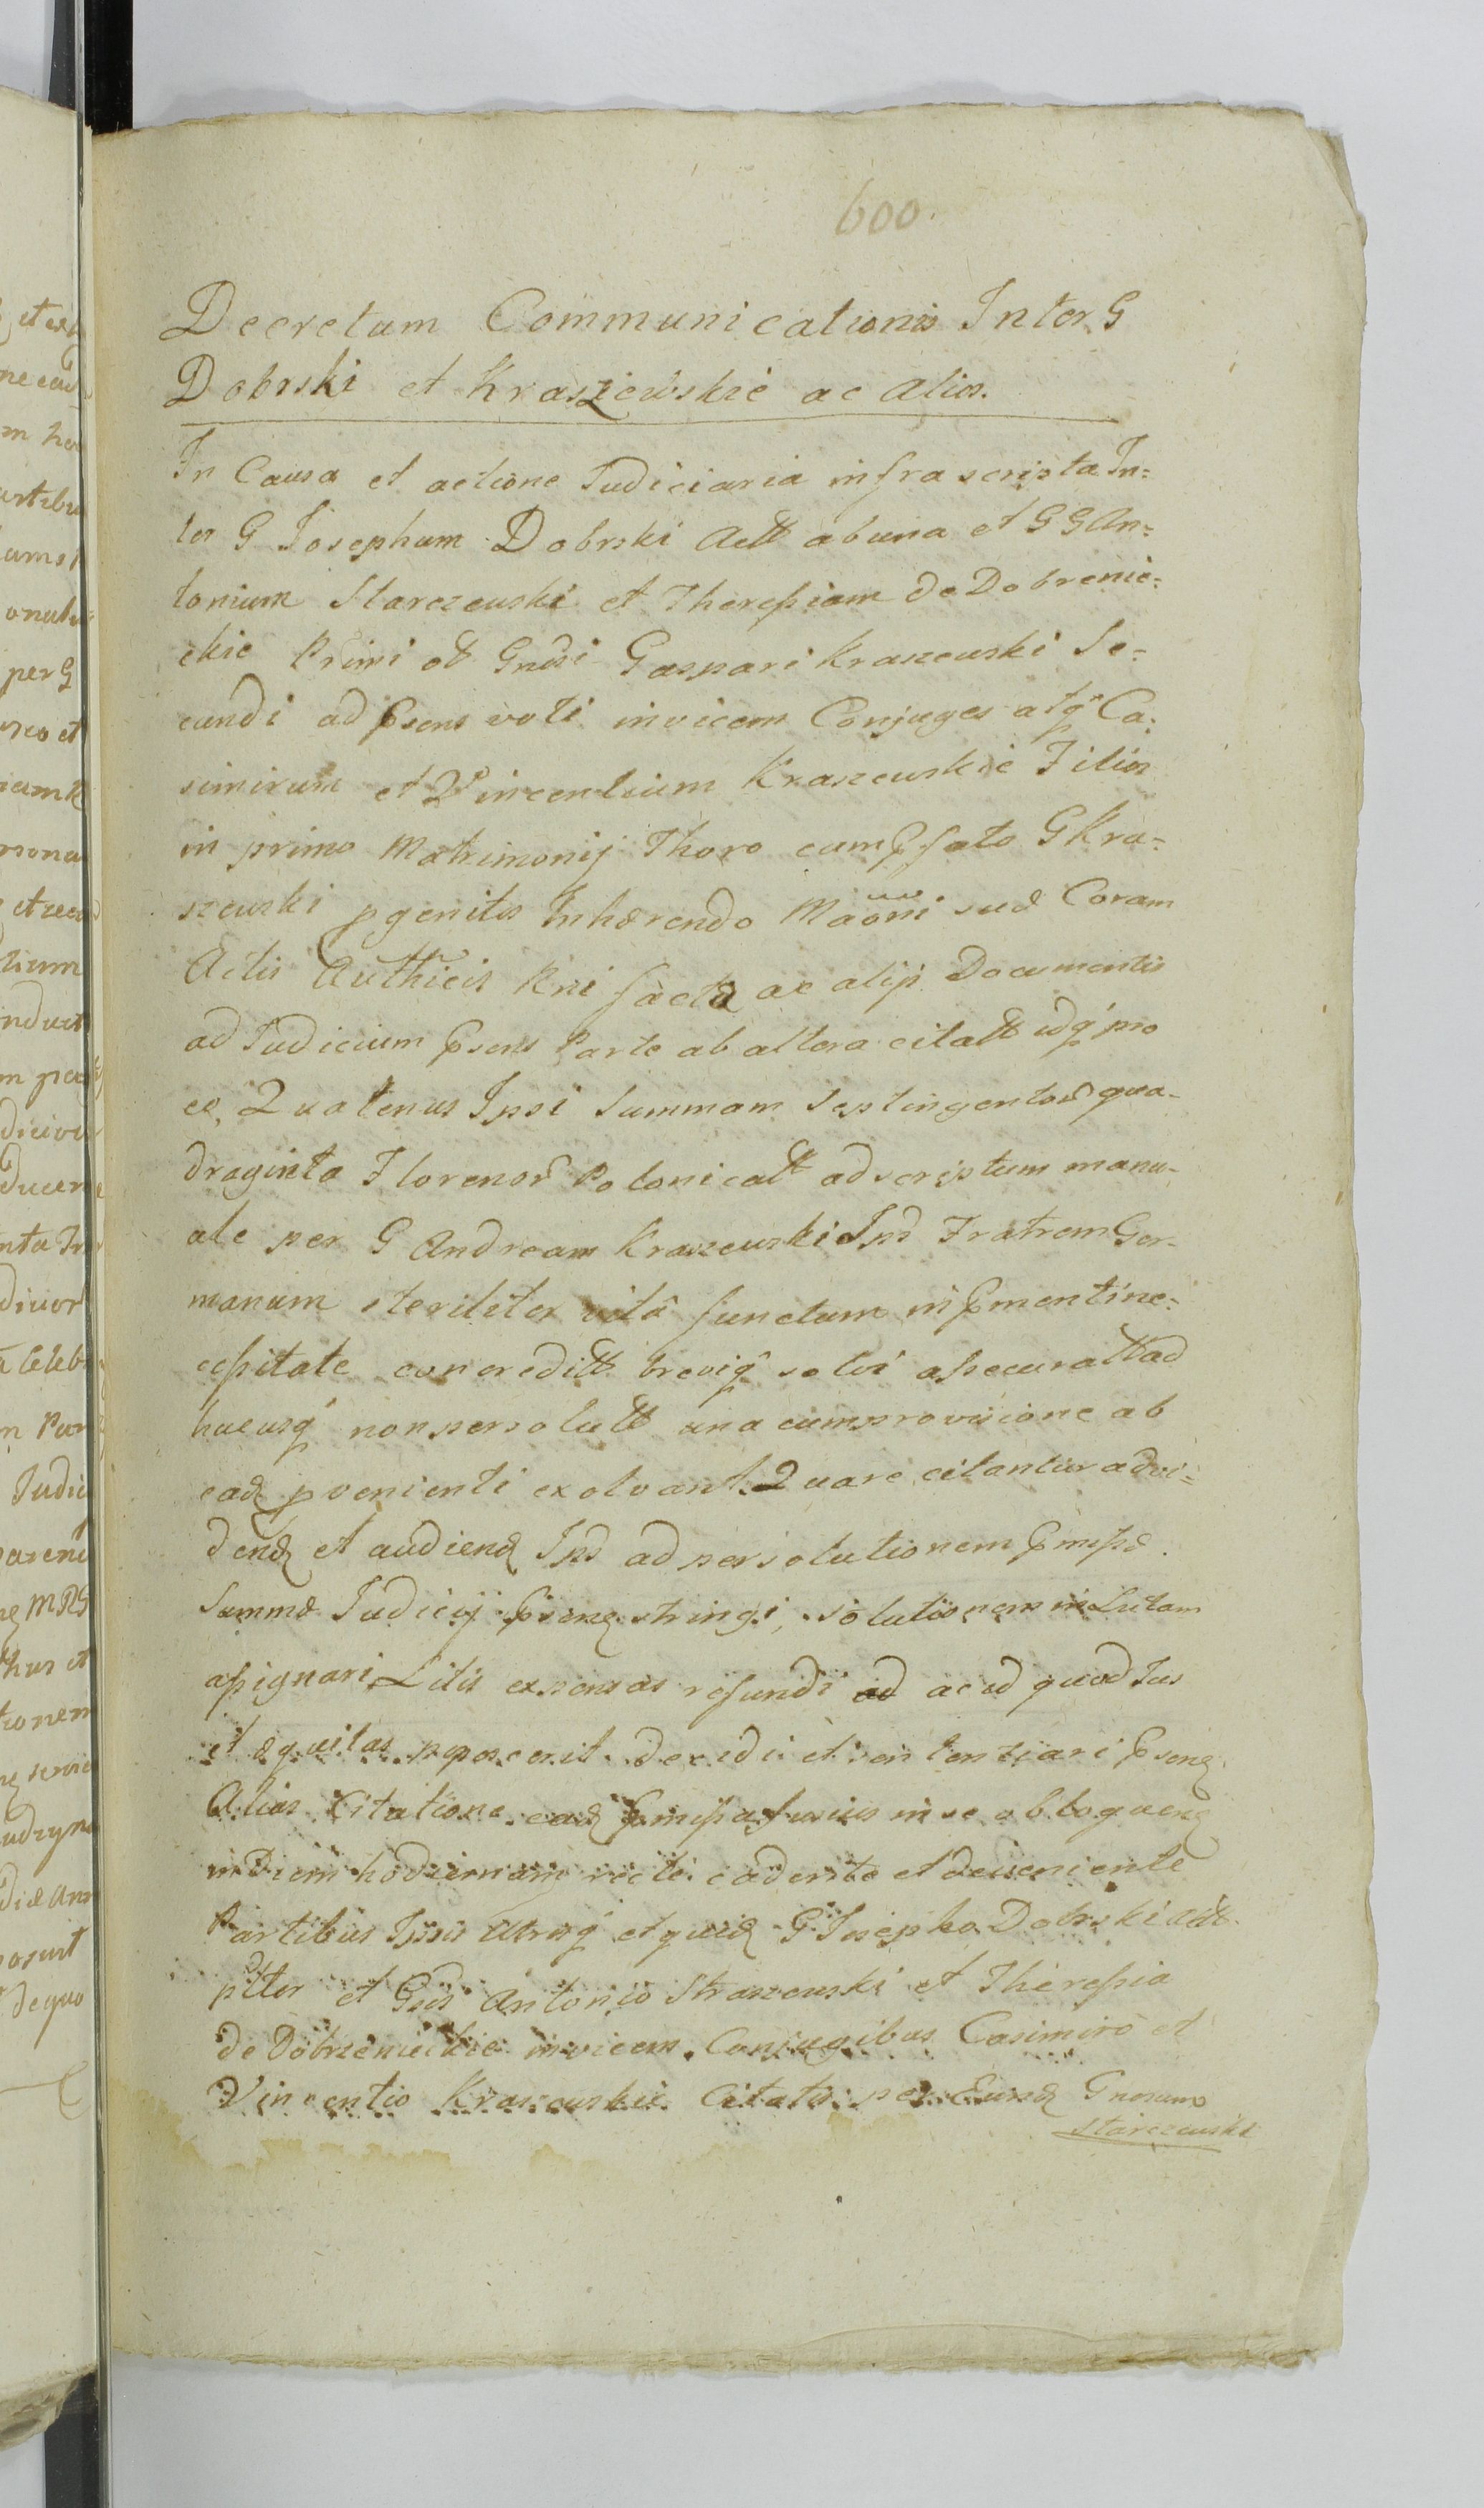 600.
Decretum Communicationis Inter G
Dobrski et Kraszewskie ac alios.
In Causa et actione Judiciaria infra scripta In=
ter G Josephum Dobrski Actt ab una et GG An=
tonium Starczewski et Theressiam de Dobrenie=
ckie Primi ot Gndsi Gaspari Kraszewski Se=
cundi ad Psens voti invicem Conjuges atq Ca=
simirum et Vincentium Kraszewskie Filios
in primo Matrimonij Thoro cum Pfato G Kra=
szewski pgenitos Inhærendo Maoni suæ Coram
Actis Authicis Rni factæ ac alijs Documentis
ad Judicium Psens Parte ab altera citatt idq pro
eo, Quatenus Ipsi Summam Septingentor qua-
draginta Florenor Polonicatt ad scriptum manu-
ale per G Andream Kraszewski Ips Fratrem Ger-
manum steriliter vitâ functum in Pmenti ne=
cessitate concreditt breviq solvi assecuratt ad
hucusq non persolutt una cum provisione ab
ead pvenienti exolvant. Quare citantur ad vi=
dend et audiend Ips ad persolutionem Pmissæ
Summæ Judicij Psens stringi, solutionem in Lutam
assignari Litis expensas refundi ac id quod Jus
et æquitas poposcerit decidi et sententiari Psens
Alias Citatione ead Pmissa fusius in se obloquens
in Diem hodiernam recte cadente et deveniente
Partibus Ipsis utrisq et quid G Josepho Dobrski Actt
ptter et Gsis Antonio Straszewski et Theressia
de Dobrzenieckie invicem Conjugibus Casimiro et
Vincentio Kraszewskie Citatis per Eund Gnosum
Starczewski